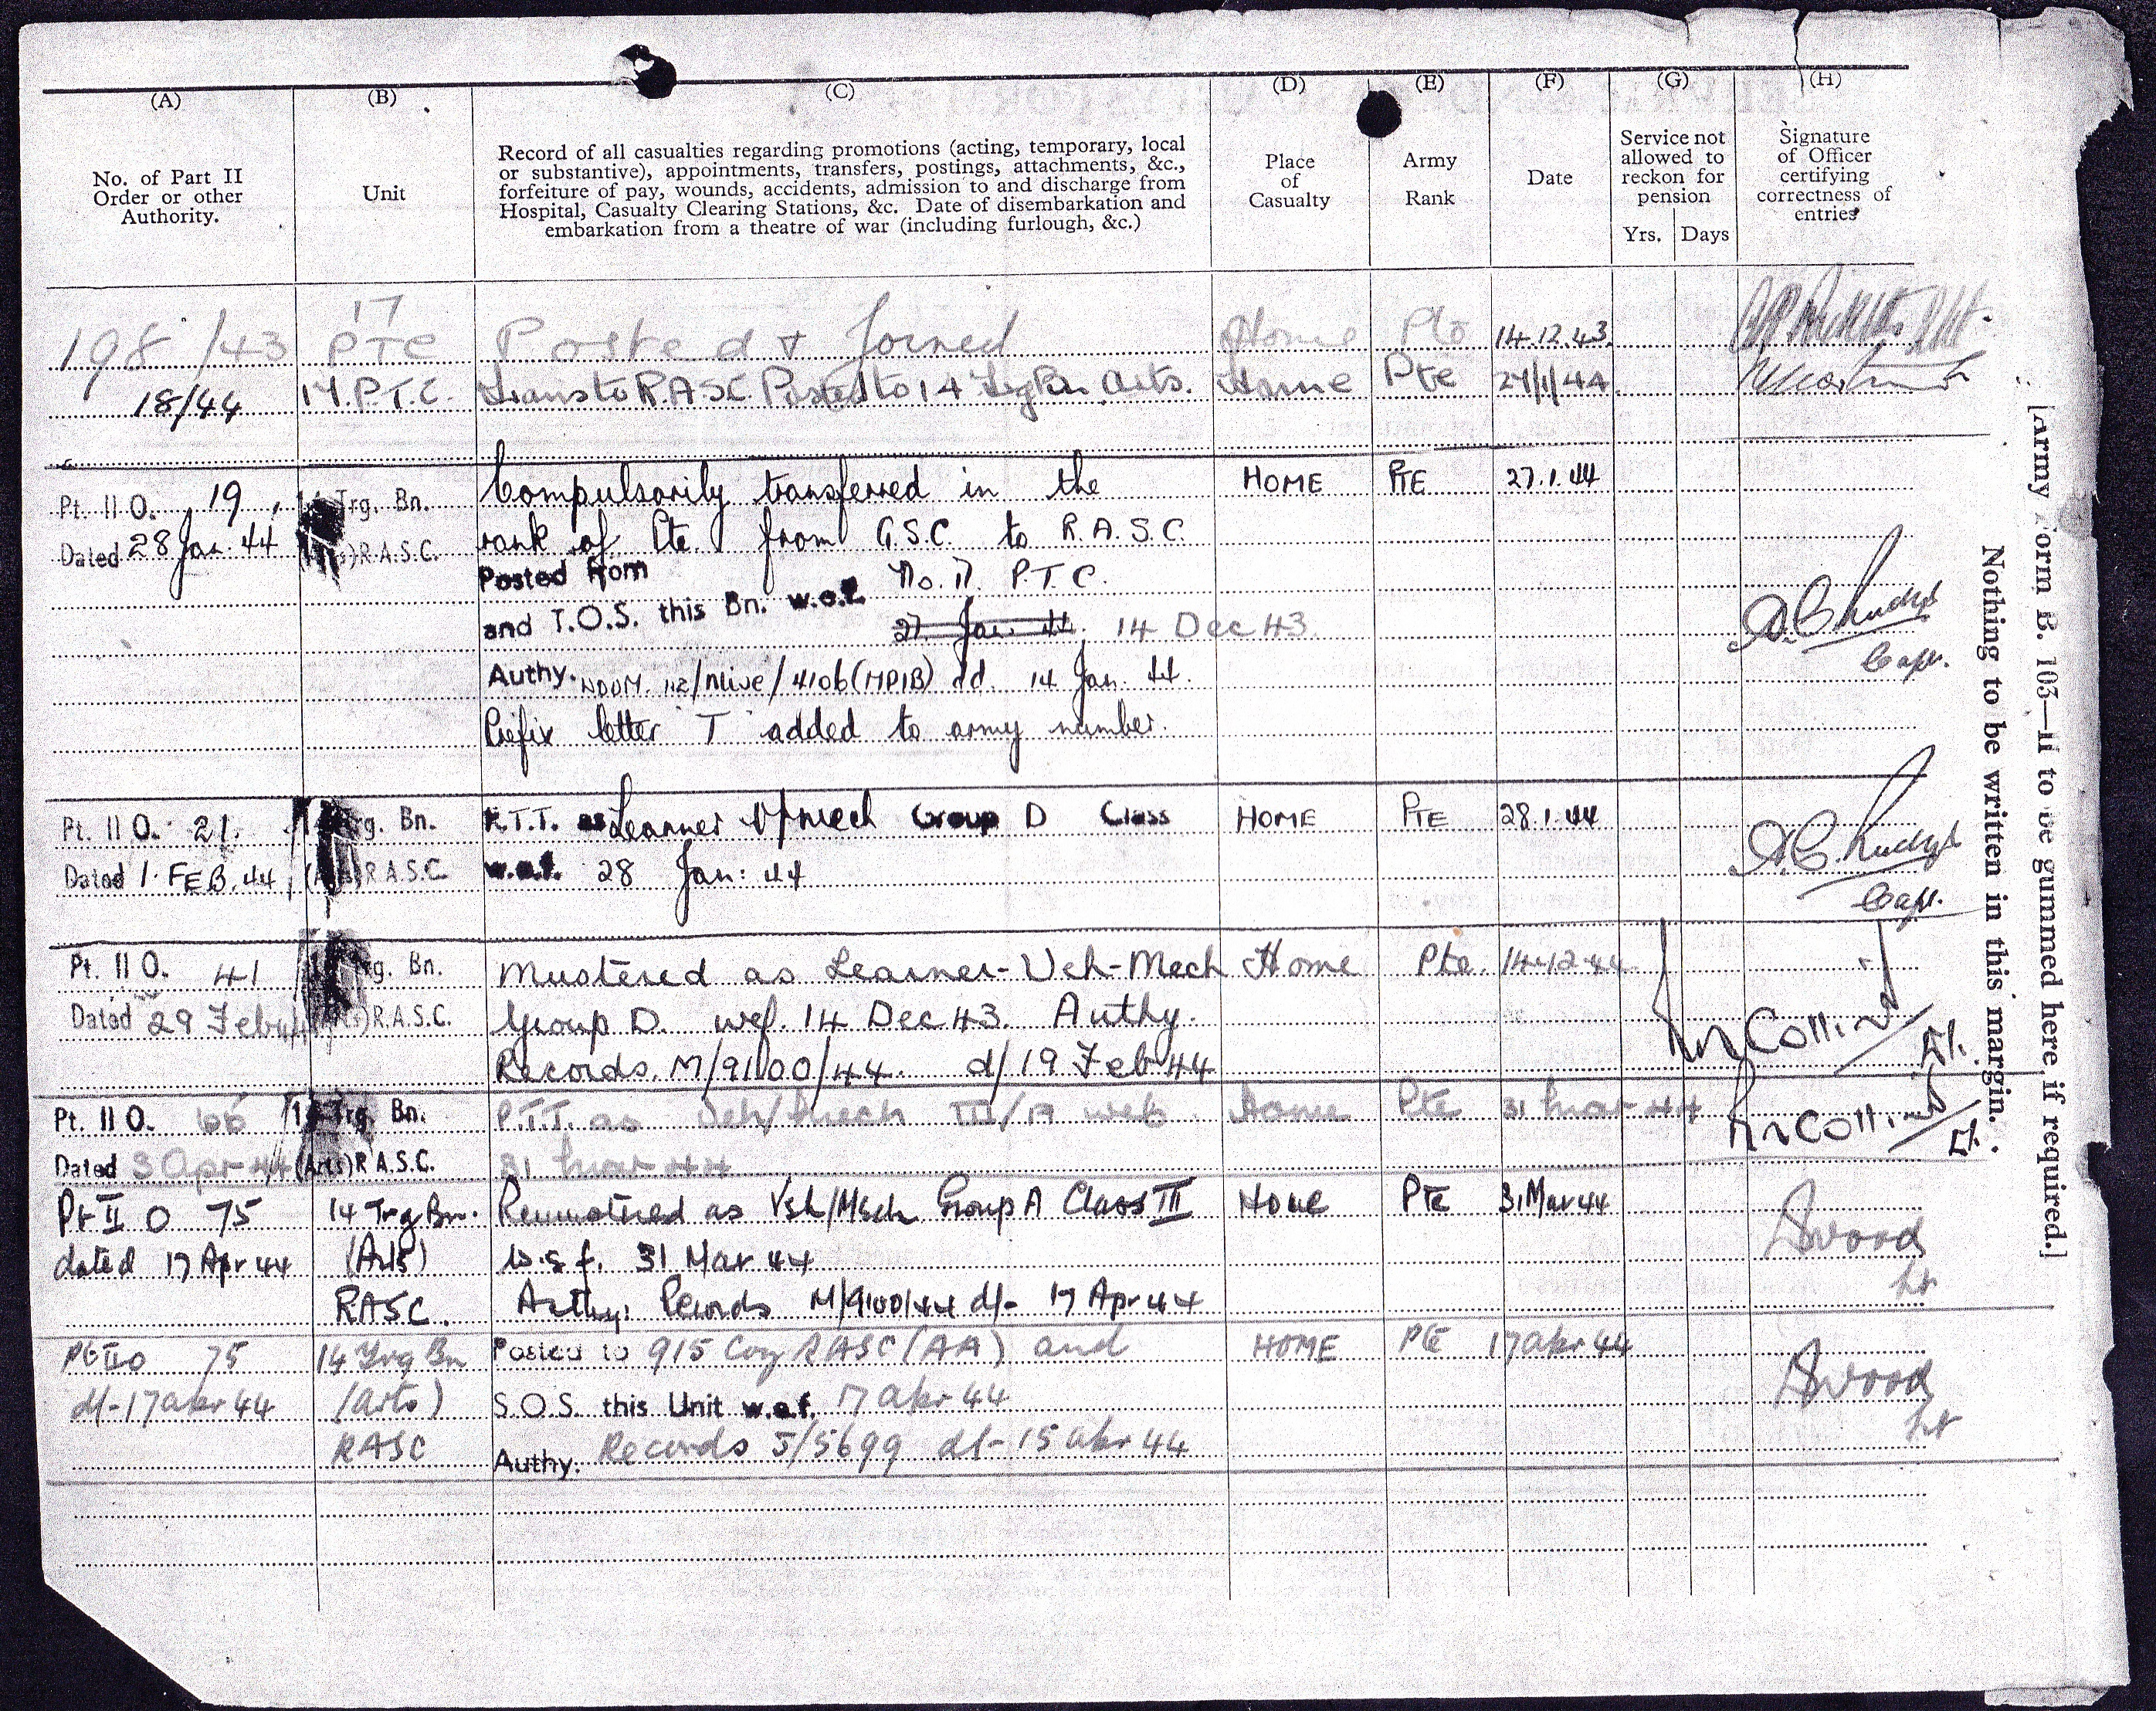 (A) (B) (C) (D) (E) (F) (G) (H)
No. of Part II
Order or other
Authority.
Unit
Record of all casualties regarding promotions (acting, temporary, local
or substantive), appointments, transfers, postings, attachments, &c.,
forfeiture of pay, wounds, accidents, admission to and discharge from
Hospital, Casualty Clearing Stations, &c. Date of disembarkation and
embarkation from a theatre of war (including furlough, &c.)
Place
of
Casualty
Army
Rank
Date
Service not
allowed to
reckon for
pension
Yrs. Days
Signature
of Officer
certifying
correctness of
entries
17
198/43 PTC Posted & Joined Home Pte 14.12.43
18/44 17.P.T.C. Trans to R.A.S.C. Posted to 14 Trg Bn Arts. Home Pte 27/1/44
Pt. II O. 19, Trg. Bn. Compulsorily transferred in the HOME PTE 27.1.44
Dated 28 Jan. 44 R.A.S.C. rank of Pte. from G.S.C. to R.A.S.C.
Posted from No. 17 P.T.C.
and T.O.S. this Bn. w.e.f. 27 Jan 44. 14 Dec 43.
Authy. /4106(MP1B) dd. 14 Jan. 44
Capt.
Prefix letter "T" added to army number.
Pt. II O. 21. Trg. Bn. R.T.T. as Learner V/mech Group D Class HOME PTE 28.1.44
Dated 1 FEB. 44 R.A.S.C. w.e.f. 28 Jan: 44
Capt.
Pt. II O. 41 Trg. Bn. Mustered as Learner-Veh-Mech Home Pte. 14-12-44
Dated 29 Feb 44 R.A.S.C. Group D. wef. 14 Dec 43. Authy. Collins
Records. M/9100/44. d/19 Feb 44 Lt.
Pt. II O. 66 14 Trg. Bn. P.T.T. as Veh/Mech III/A wef Home Pte 31 Mar 44 Collins
Dated 3 Apr 44 (Arts) R.A.S.C. 31 Mar 44 Lt.
Pt II O 75 14 Trg Bn. Remustered as Veh/Mech Group A Class III Home Pte 31 Mar 44
dated 17 Apr 44 (Arts) w.e.f. 31 Mar 44 Wood
RASC. Authy: Records M/9100/44 d/- 17 Apr 44 Lt
Pt II O 75 14 Trg Bn Posted to 915 Coy RASC (AA) and HOME Pte 17 Apr 44
d/- 17 Apr 44 (Arts) S.O.S. this Unit w.e.f. 17 Apr 44 Wood
RASC Authy. Records 5/5699 d/- 15 Apr 44 Lt
Nothing to be written in this margin.
[Army Form B. 103—II to be gummed here, if required.]